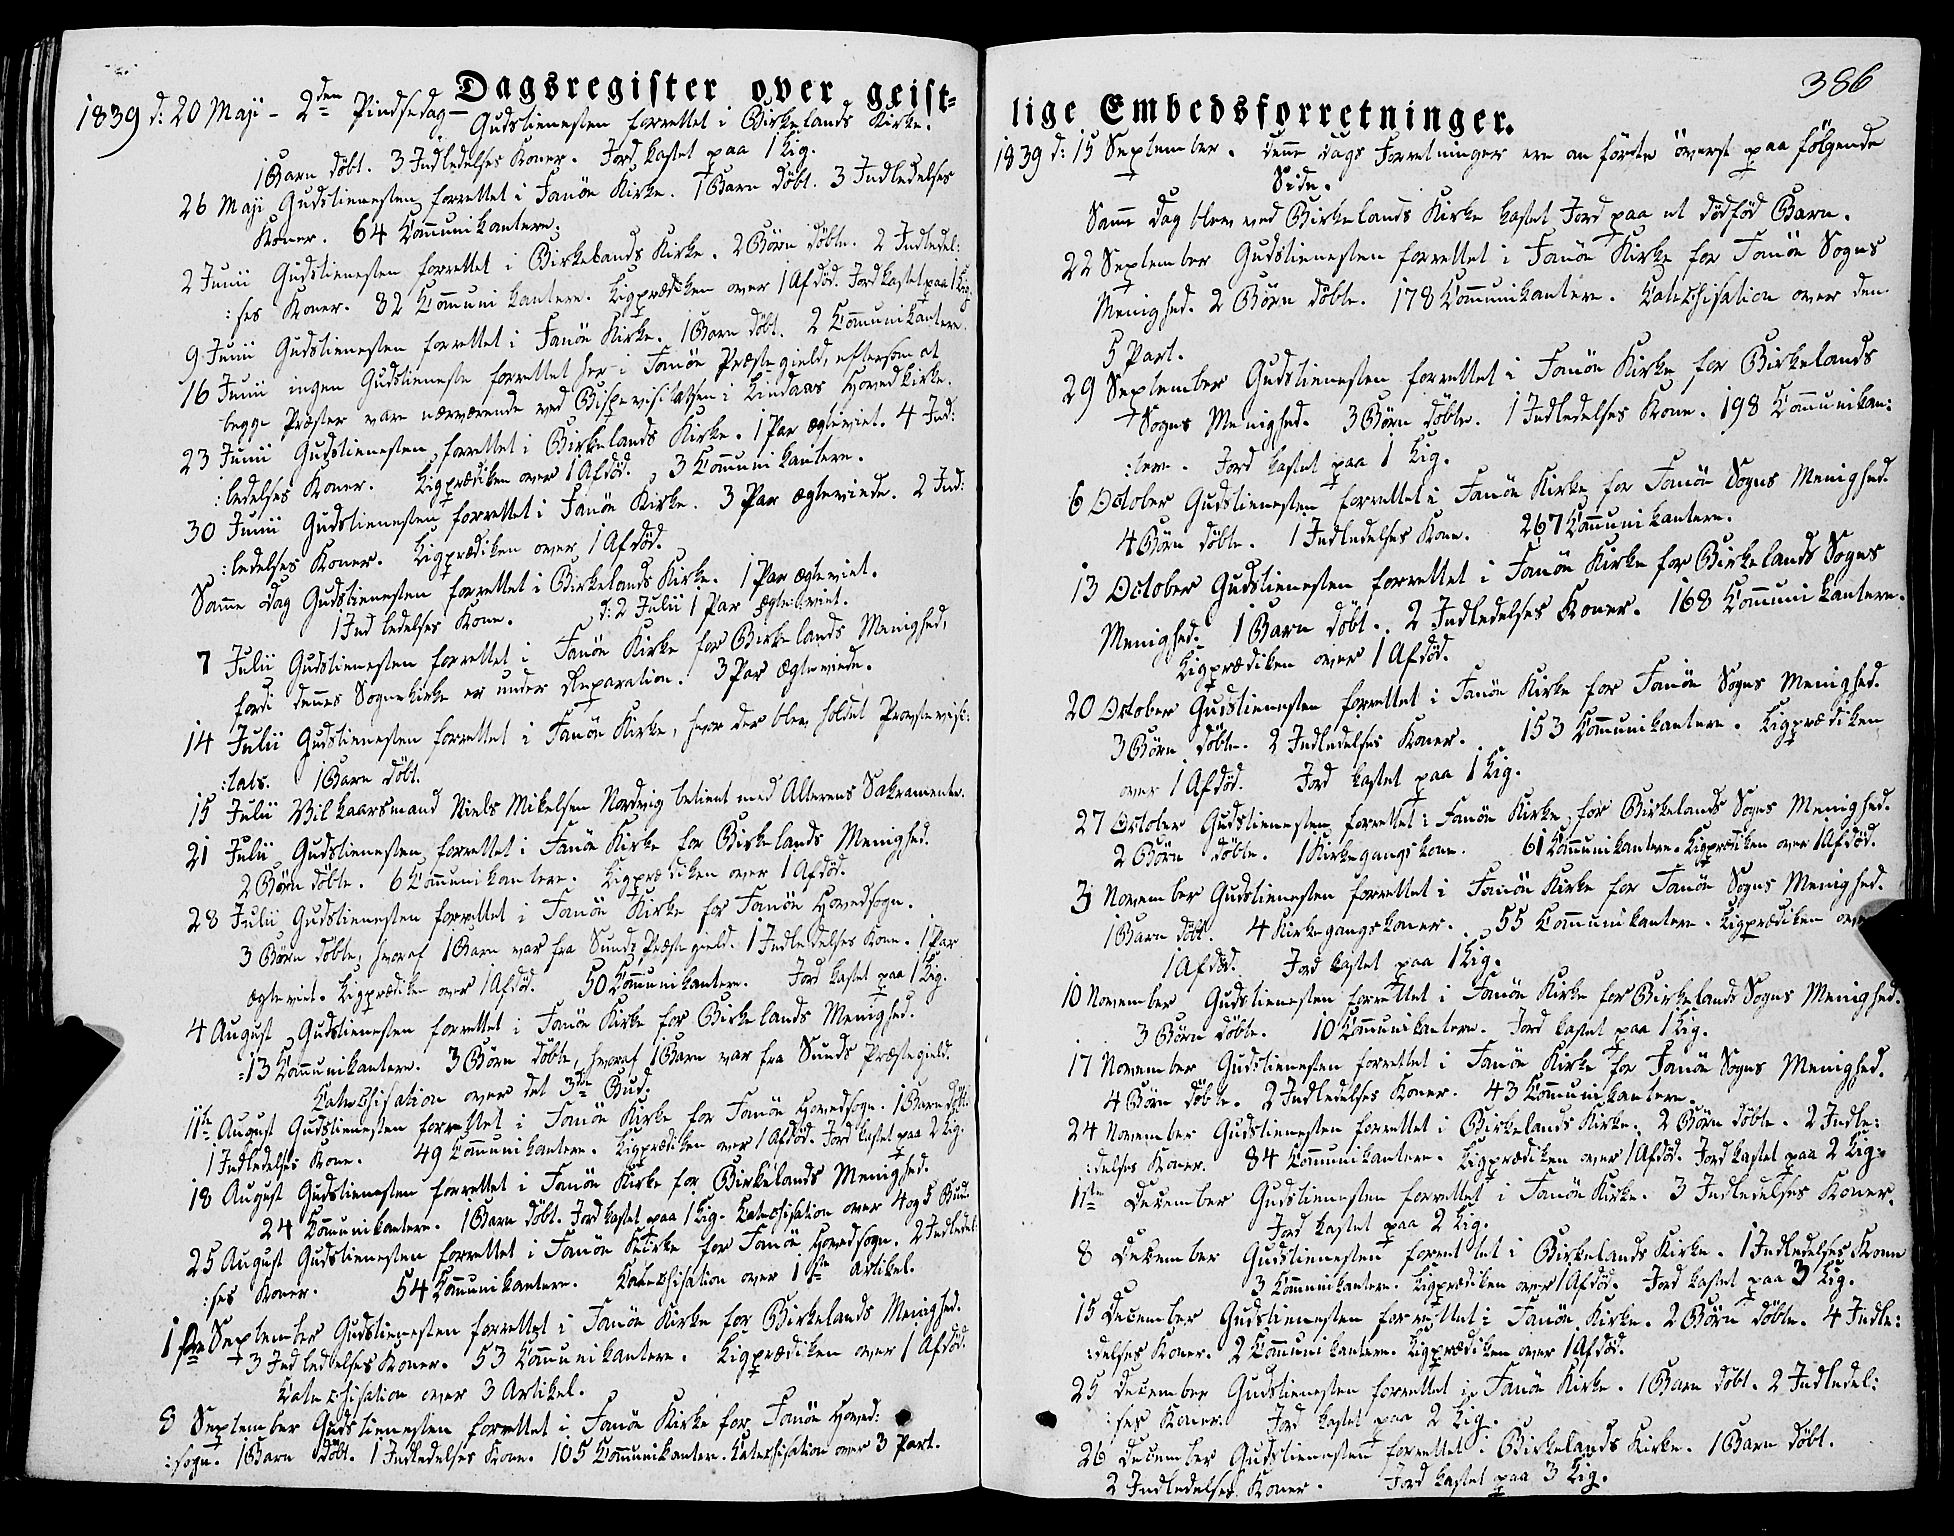 Dagsregister over geist=
1839 d: 20 Maji - 2den Pindsedag - Gudstienesten forrettet i Birkelands Kirke.
1 Barn döbt. 3 Indledelses Koner. Jord kastet paa 1 Lig.
26 Maji Gudstienesten forrettet i Fanöe Kirke. 1 Barn döbt. 3 Indledelses
Koner. 64 Com̅unikantere.
2 Junii Gudstienesten forrettet i Birkelands Kirke. 2 Börn döbte. 2 Indledel:
:ses Koner. 82 Com̅unikantere. Ligprædiken over 1 Afdöd. Jord kastet paa 1 Lig.
9 Junii Gudstienesten forrettet i Fanöe Kirke. 1 Barn döbt. 2 Com̅unikantere.
16 Junii ingen Gudstieneste forrettet her i Fanöe Præstegield, eftersom at
begge Præster vare nærværende ved Bispevisitatsen i Lindaas Hovedkirke.
23 Junii Gudstienesten forrettet i Birkelands Kirke. 1 Par ægteviet. 4 Ind:
:ledelses Koner. Ligprædiken over 1 Afdöd. 3 Com̅unikantere.
30 Junii Gudstienesten forrettet i Fanöe Kirke. 3 Par ægteviede. 2 Ind:
:ledelses Koner. Ligprædiken over 1 Afdöd.
Sam̅e Dag Gudstienesten forrettet i Birkelands Kirke. 1 Par ægteviet.
1 Indledelses Kone. d: 2 Julii 1 Par ægteviet.
7 Julii Gudstienesten forrettet i Fanöe Kirke for Birkelands Menighed,
fordi dennes Sognekirke er under Reparation. 3 Par ægteviede.
14 Julii Gudstienesten forrettet i Fanöe Kirke, hvor der blev holdet Provstevisi:
:tats. 1 Barn döbt.
15 Julii Vilkaarsmand Niels Mikelsen Nordvig betient med Alterens Sakramente.
21 Julii Gudstienesten forrettet i Fanöe Kirke for Birkelands Menighed.
2 Börn döbte. 6 Com̅unikantere. Ligprædiken over 1 Afdöd.
28 Julii Gudstienesten forrettet i Fanöe Kirke for Fanöe Hovedsogn.
3 Börn döbte, hvoraf 1 Barn var fra Sunds Præstegield. 1 Indledelses Kone. 1 Par
ægteviet. Ligprædiken over 1 Afdöd. 50 Com̅unikantere. Jord kastet paa 1 Lig.
4 August Gudstienesten forrettet i Fanöe Kirke for Birkelands Menighed.
:13 Com̅unikantere. 3 Börn döbte, hvoraf 1 Barn var fra Sunds Præstegield.
Catechisation over det 3die Bud.
11te August Gudstienesten forrettet i Fanöe Kirke for Fanöe Hovedsogn. 1 Barn döbt.
1 Indledelses Kone. 49 Com̅unikantere. Ligprædiken over 1 Afdöd. Jord kastet paa 2 Lig.
18 August Gudstienesten forrettet i Fanöe Kirke for Birkelands Menighed.
24 Com̅unikantere. 1 Barn döbt. Jord kastet paa 1 Lig. Catechisation over 4 og 5 Bud.
25 August Gudstienesten forrettet i Fanöe Kirke for Fanöe Hovedsogn. 2 Indledel:
:ses Koner. 54 Com̅unikantere. Catechisation over 1ste Artikel.
1ste September Gudstienesten forrettet i Fanöe Kirke for Birkelands Menighed.
3 Indledelses Koner. 53 Com̅unikantere. Ligprædiken over 1 Afdöd.
Catechisation over 3 Artikel.
8 September Gudstienesten forrettet i Fanöe Kirke for Fanöe Hoved:
:sogn. 1 Barn döbt. 1 Indledelses Kone. 105 Com̅unikantere. Catechisation over 3 Part.
386
lige Embedsforretninger.
1839 d: 15 September. Denne Dags Forretninger ere anförte överst paa fölgende
Side.
Sam̅e Dag blev ved Birkelands Kirke kastet Jord paa et dödfød Barn.
22 September Gudstienesten forrettet i Fanöe Kirke for Fanöe Sogns
Menighed. 2 Börn döbte. 178 Com̅unikantere. Catechisation over den
5 Part.
29 September Gudstienesten forrettet i Fanöe Kirke for Birkelands
Sogns Menighed. 3 Börn döbte. 1 Indledelses Kone. 198 Com̅unikan:
:tere. Jord kastet paa 1 Lig.
6 October Gudstienesten forrettet i Fanöe Kirke for Fanöe Sogns Menighed.
4 Börn döbte. 1 Indledelses Kone. 267 Com̅unikantere.
13 October Gudstienesten forrettet i Fanöe Kirke for Birkelands Sogns
Menighed. 1 Barn döbt. 2 Indledelses Koner. 168 Com̅unikantere.
Ligprædiken over 1 Afdöd.
20 October Gudstienesten forrettet i Fanöe Kirke for Fanöe Sogns Menighed.
3 Börn döbte. 2 Indledelses Koner. 153 Com̅unikantere. Ligprædiken
over 1 Afdöd. Jord kastet paa 1 Lig.
27 October Gudstienesten forrettet i Fanöe Kirke for Birkelands Sogns Menighed.
2 Börn döbte. 1 Kirkegangskone. 61 Com̅unikantere. Ligprædiken over 1 Afdöd.
3 November Gudstienesten forrettet i Fanöe Kirke for Fanöe Sogns Menighed.
1 Barn döbt. 4 Kirkegangskoner. 55 Com̅unikantere. Ligprædiken over
1 Afdöd. Jord kastet paa 1 Lig.
10 November Gudstienesten forrettet i Fanöe Kirke for Birkelands Sogns Menighed.
3 Börn döbte. 10 Com̅unikantere. Jord kastet paa 1 Lig.
17 November Gudstienesten forrettet i Fanöe Kirke for Fanöe Sogns Menighed.
4 Börn döbte. 2 Indledelses Koner. 43 Com̅unikantere.
24 November Gudstienesten forrettet i Birkelands Kirke. 2 Börn döbte. 2 Indle:
:delses Koner. 84 Com̅unikantere. Ligprædiken over 1 Afdöd. Jord kastet paa 2 Lig.
1ste December Gudstienesten forrettet i Fanöe Kirke. 3 Indledelses Koner.
Jord kastet paa 2 Lig.
8 December Gudstienesten forrettet i Birkelands Kirke. 1 Indledelses Kone
3 Com̅unikantere. Ligprædiken over 1 Afdöd. Jord kastet paa 3 Lig.
15 December Gudstienesten forrettet i Fanöe Kirke. 2 Börn döbte. 4 Indle:
:delses Koner. 2 Com̅unikantere. Ligprædiken over 1 Afdöd.
25 December Gudstienesten forrettet i Fanöe Kirke. 1 Barn döbt. 2 Indledel:
:ses Koner. Jord kastet paa 2 Lig.
26 December Gudstienesten forrettet i Birkelands Kirke. 1 Barn döbt.
2 Indledelses Koner. Jord kastet paa 3 Lig.